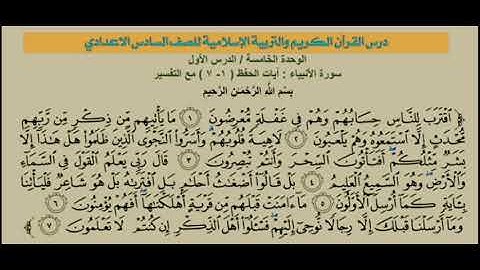 درس القرآن الكريم والتربية الإسلامية للصف السادس الاعدادي
الوحدة الخامسة / الدرس الأول
سورة الأنبياء : آيات الحفظ ( ١- ٧ ) مع التفسير
بِسْمِ اللَّهِ الرَّحْمَنِ الرَّحِيمِ
﴿ ٱقْتَرَبَ لِلنَّاسِ حِسَابُهُمْ وَهُمْ فِي غَفْلَةٍ مُّعْرِضُونَ ۝١ مَا يَأْتِيهِم مِّن ذِكْرٍ مِّن رَّبِّهِم
مُّحْدَثٍ إِلَّا ٱسْتَمَعُوهُ وَهُمْ يَلْعَبُونَ ۝٢ لَاهِيَةً قُلُوبُهُمْ وَأَسَرُّوا۟ ٱلنَّجْوَى ٱلَّذِينَ ظَلَمُوا۟ هَلْ هَٰذَآ إِلَّا
بَشَرٌ مِّثْلُكُمْ أَفَتَأْتُونَ ٱلسِّحْرَ وَأَنتُمْ تُبْصِرُونَ ۝٣ قَالَ رَبِّي يَعْلَمُ ٱلْقَوْلَ فِي ٱلسَّمَآءِ
وَٱلْأَرْضِ وَهُوَ ٱلسَّمِيعُ ٱلْعَلِيمُ ۝٤ بَلْ قَالُوٓا۟ أَضْغَٰثُ أَحْلَٰمٍ بَلِ ٱفْتَرَىٰهُ بَلْ هُوَ شَاعِرٌ فَلْيَأْتِنَا
بِـَٔايَةٍ كَمَآ أُرْسِلَ ٱلْأَوَّلُونَ ۝٥ مَآ ءَامَنَتْ قَبْلَهُم مِّن قَرْيَةٍ أَهْلَكْنَٰهَآ أَفَهُمْ يُؤْمِنُونَ ۝٦
وَمَآ أَرْسَلْنَا قَبْلَكَ إِلَّا رِجَالًا نُّوحِيٓ إِلَيْهِمْ فَسْـَٔلُوٓا۟ أَهْلَ ٱلذِّكْرِ إِن كُنتُمْ لَا تَعْلَمُونَ ۝٧ ﴾